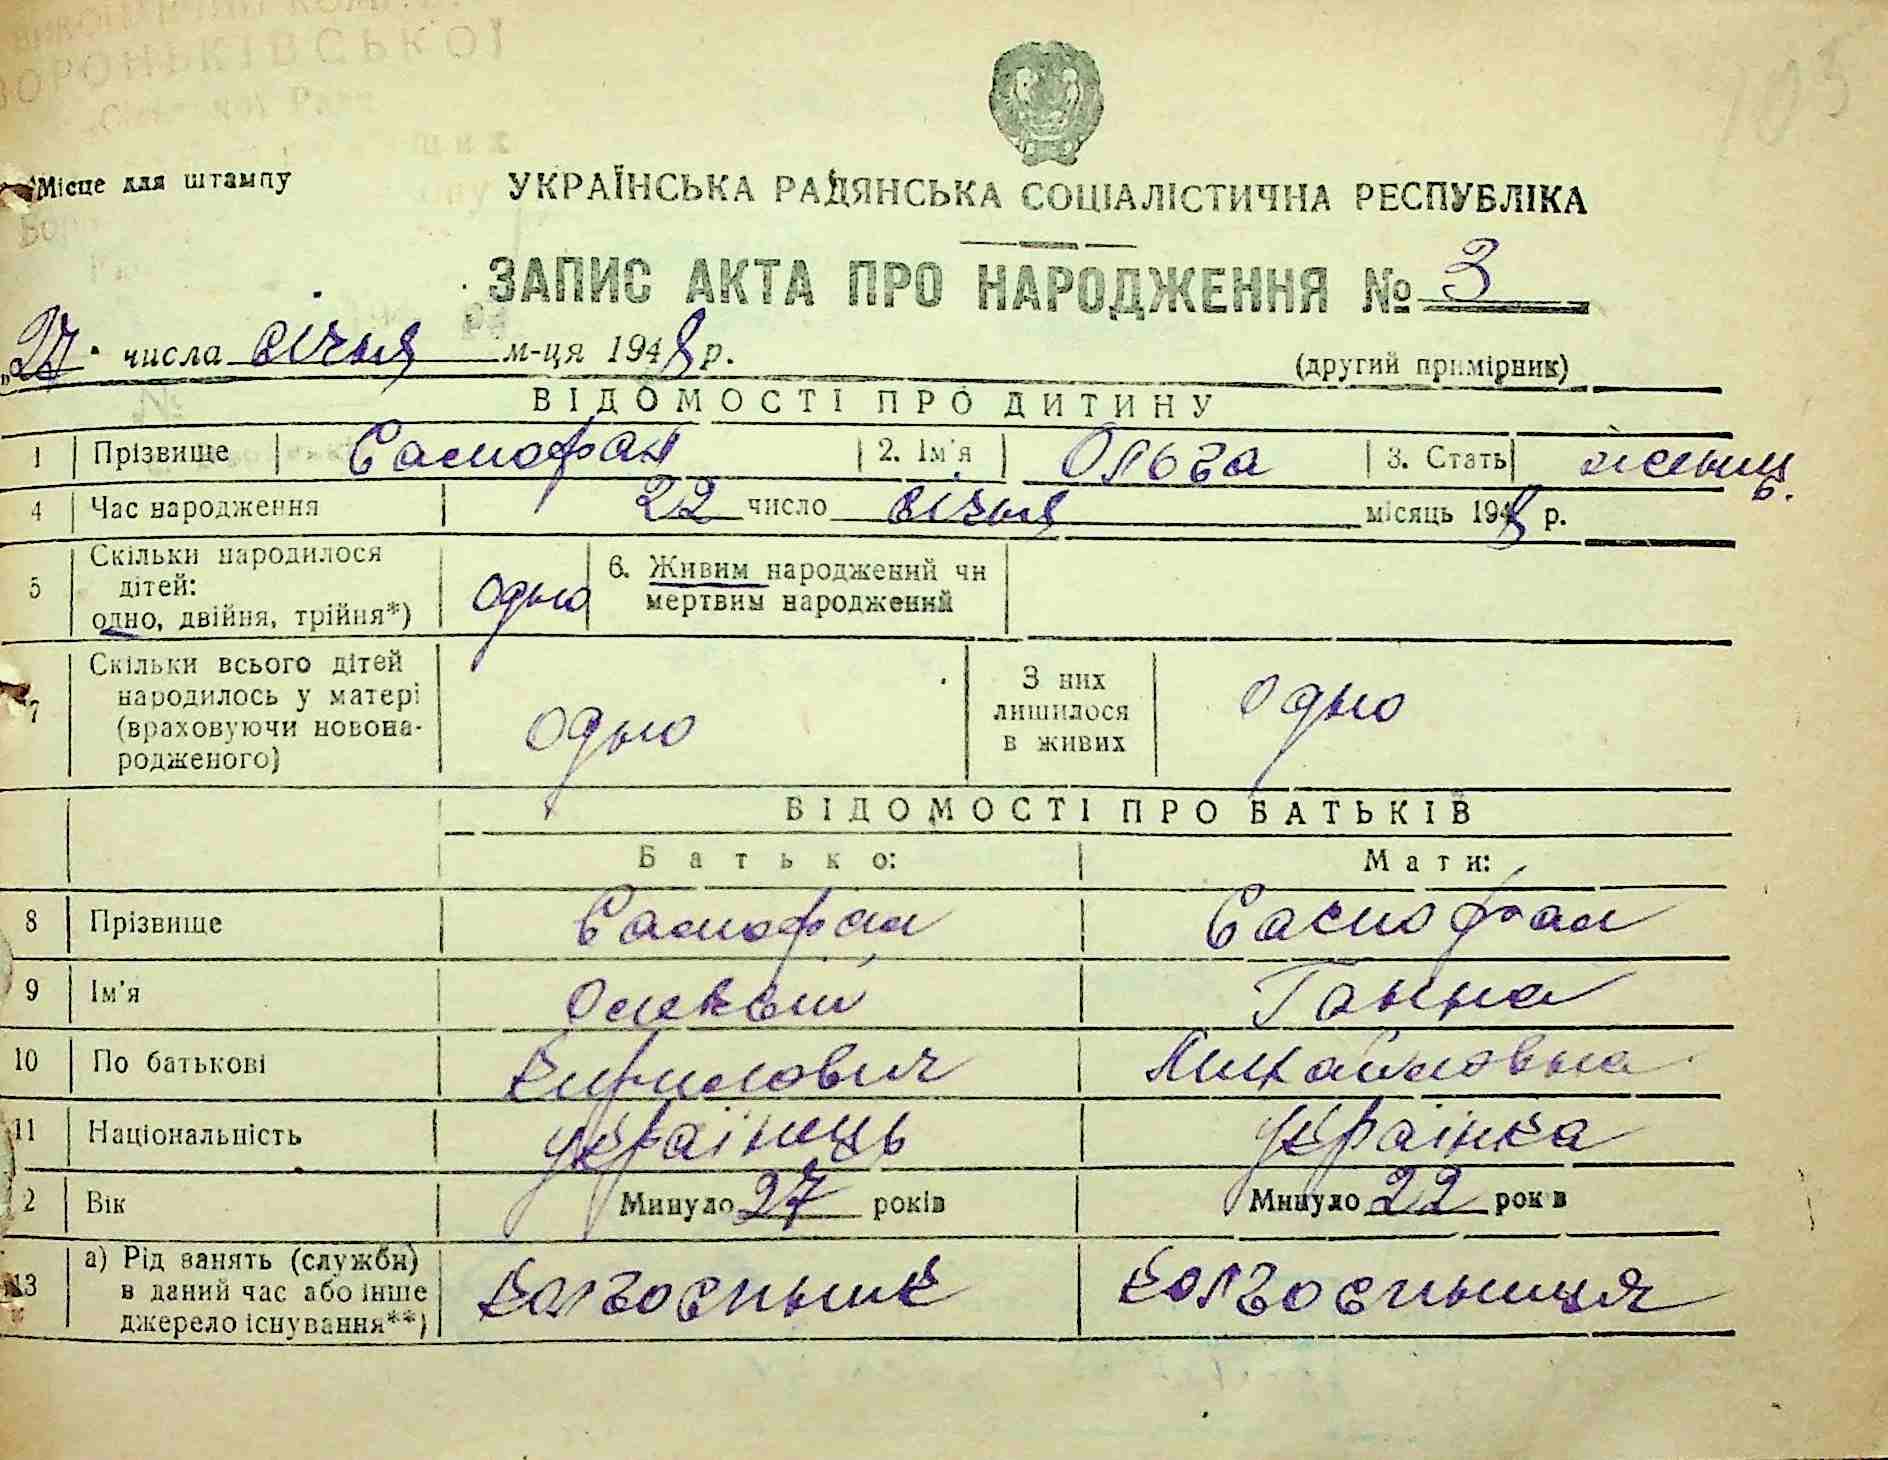 ВОРОНЬКІВСЬКОЇ
105
Місце для штампу
УКРАЇНСЬКА РАДЯНСЬКА СОЦІАЛІСТИЧНА РЕСПУБЛІКА
ЗАПИС АКТА ПРО НАРОДЖЕННЯ № 3
„27" числа січня м-ця 1948 р.
(другий примірник)
ВІДОМОСТІ ПРО ДИТИНУ
1 Прізвище Самофал 2. Ім'я Ольга 3. Стать жіноч.
4 Час народження 22 число січня місяць 1948 р.
5 Скільки народилося дітей: одно, двійня, трійня*) одно 6. Живим народжений чи мертвим народжений
7 Скільки всього дітей народилось у матері (враховуючи новонародженого) одно З них лишилося в живих одно
ВІДОМОСТІ ПРО БАТЬКІВ
Батько: Мати:
8 Прізвище Самофал Самофал
9 Ім'я Олексій Ганна
10 По батькові Кирилович Михайловна
11 Національність українець українка
2 Вік Минуло 27 років Минуло 22 років
13 а) Рід занять (служби) в даний час або інше джерело існування**) колгоспник колгоспниця